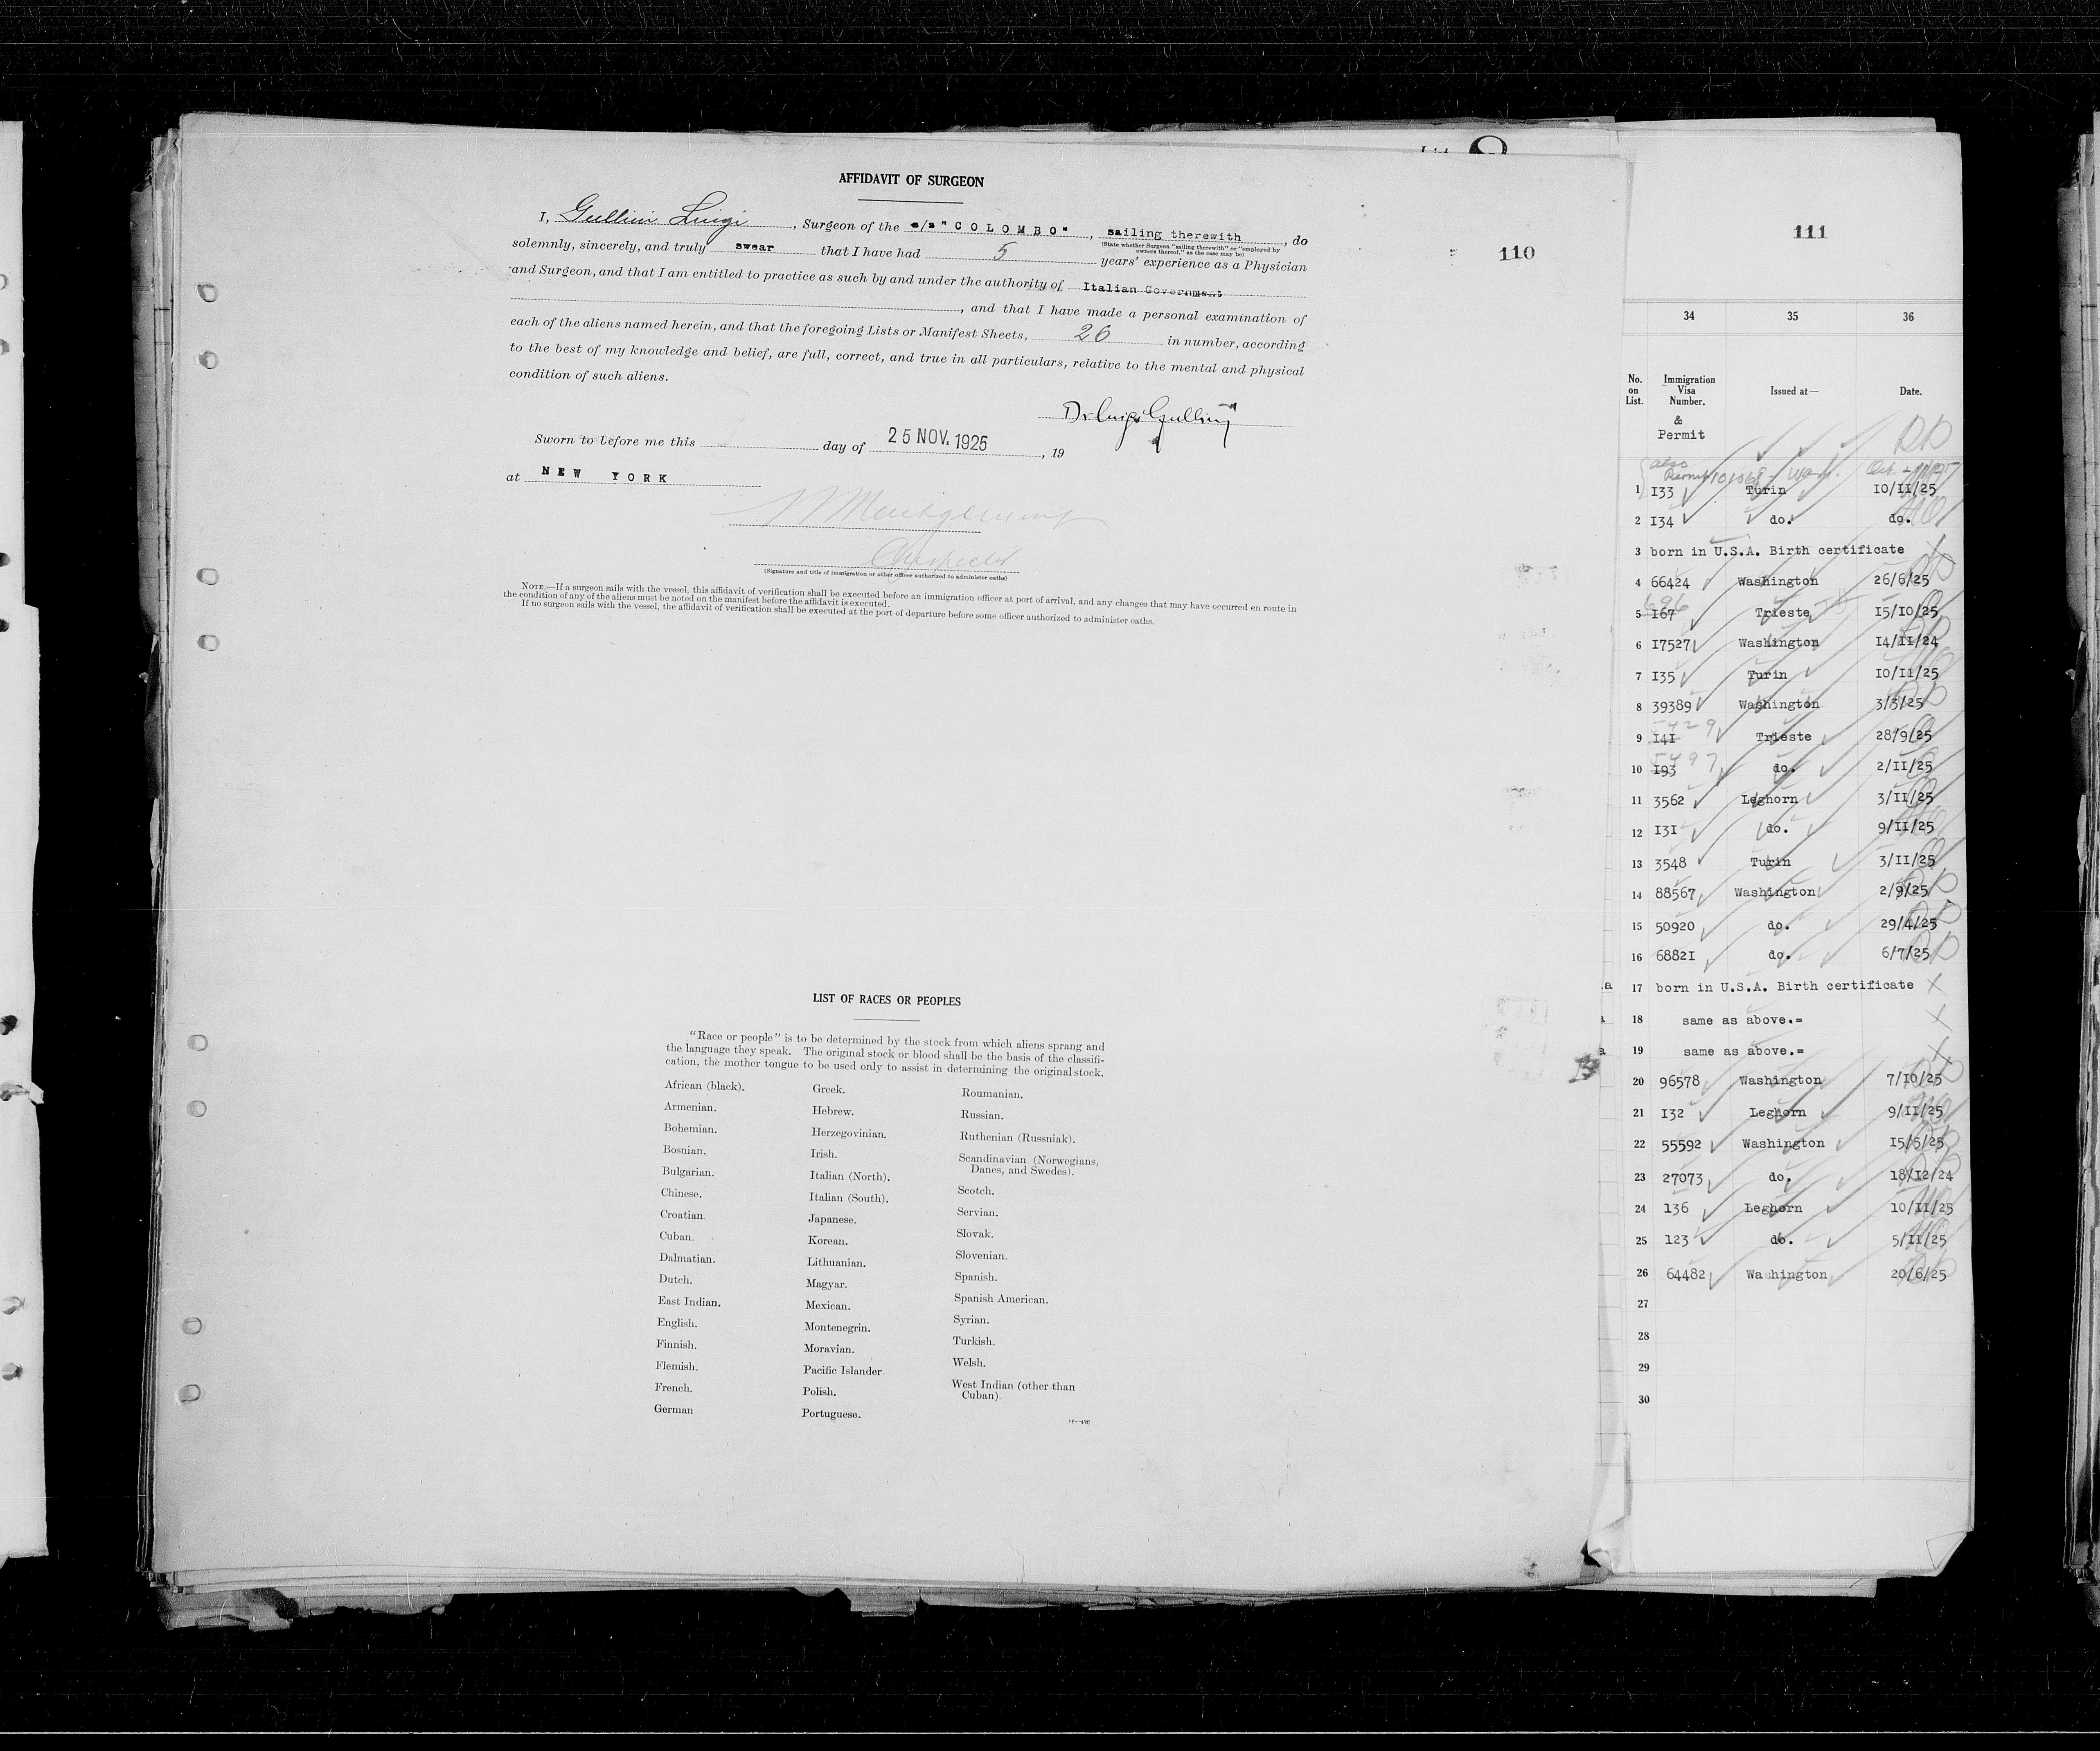 AFFIDAVIT OF SURGEON
I, Gullini Luigi, Surgeon of the s/s "COLOMBO", sailing therewith, do
(State whether Surgeon "sailing therewith" or "employed by owners thereof," as the case may be)
solemnly, sincerely, and truly swear that I have had 5 years' experience as a Physician
and Surgeon, and that I am entitled to practice as such by and under the authority of Italian Government
, and that I have made a personal examination of
each of the aliens named herein, and that the foregoing Lists or Manifest Sheets, 26 in number, according
to the best of my knowledge and belief, are full, correct, and true in all particulars, relative to the mental and physical
condition of such aliens.
Dr Luigi Gullini
Sworn to before me this day of 25 NOV. 1925, 19
at NEW YORK
Inspector
(Signature and title of immigration or other officer authorized to administer oaths)
NOTE.—If a surgeon sails with the vessel, this affidavit of verification shall be executed before an immigration officer at port of arrival, and any changes that may have occurred en route in
the condition of any of the aliens must be noted on the manifest before the affidavit is executed.
If no surgeon sails with the vessel, the affidavit of verification shall be executed at the port of departure before some officer authorized to administer oaths.
110
LIST OF RACES OR PEOPLES
"Race or people" is to be determined by the stock from which aliens sprang and
the language they speak. The original stock or blood shall be the basis of the classifi-
cation, the mother tongue to be used only to assist in determining the original stock.
African (black).
Armenian.
Bohemian.
Bosnian.
Bulgarian.
Chinese.
Croatian.
Cuban.
Dalmatian.
Dutch.
East Indian.
English.
Finnish.
Flemish.
French.
German
Greek.
Hebrew.
Herzegovinian.
Irish.
Italian (North).
Italian (South).
Japanese.
Korean.
Lithuanian.
Magyar.
Mexican.
Montenegrin.
Moravian.
Pacific Islander.
Polish.
Portuguese.
Roumanian.
Russian.
Ruthenian (Russniak).
Scandinavian (Norwegians,
Danes, and Swedes).
Scotch.
Servian.
Slovak.
Slovenian.
Spanish.
Spanish American.
Syrian.
Turkish.
Welsh.
West Indian (other than
Cuban).
111
34 35 36
No. on List. Immigration Visa Number. Issued at— Date.
& Permit
also
1 133 Turin 10/11/25
2 134 do. do.
3 born in U.S.A. Birth certificate
4 66424 Washington 26/6/25
5 167 Trieste 15/10/25
6 17527 Washington 14/11/24
7 135 Turin 10/11/25
8 39389 Washington 3/3/25
9 141 Trieste 28/9/25
10 193 do. 2/11/25
11 3562 Leghorn 3/11/25
12 131 do. 9/11/25
13 3548 Turin 3/11/25
14 88567 Washington 2/9/25
15 50920 do. 29/4/25
16 68821 do. 6/7/25
17 born in U.S.A. Birth certificate
18 same as above.=
19 same as above.=
20 96578 Washington 7/10/25
21 132 Leghorn 9/11/25
22 55592 Washington 15/5/25
23 27073 do. 18/12/24
24 136 Leghorn 10/11/25
25 123 do. 5/11/25
26 64482 Washington 20/6/25
27
28
29
30